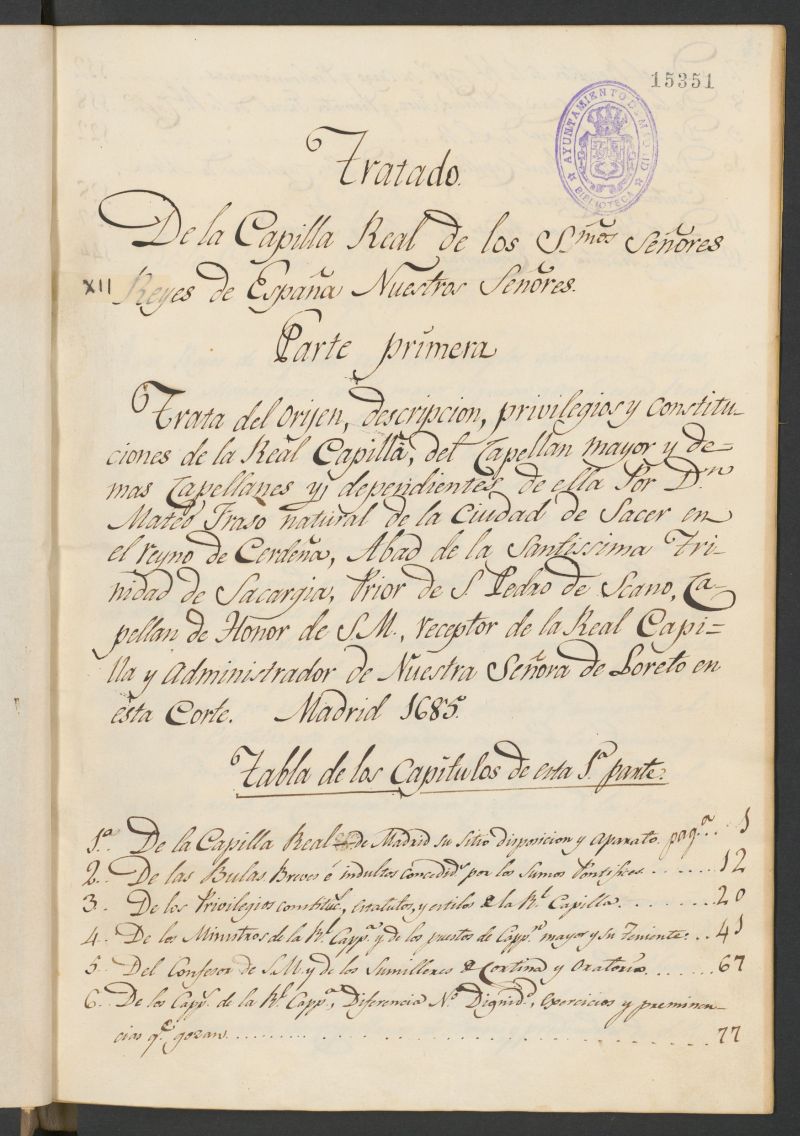 15351
AYUNTAMIENTO DE MADRID
BIBLIOTECA
Tratado.
De la Capilla Real de los S.mos Señores
XII Reyes de España Nuestros Señores.
Parte primera
Trata del orijen, descripcion, privilegios y constitu-
ciones de la Real Capilla, del Capellan mayor y de=
mas Capellanes y dependientes de ella Por D.n
Mateo Fraso natural de la Ciudad de Sacer en
el reyno de Cerdeña, Abad de la Santissima Tri-
nidad de Sacargia, Prior de S. Pedro de Scano, Ca-
pellan de Honor de S.M., receptor de la Real Capi-
lla y Administrador de Nuestra Señora de Loreto en
esta Corte. Madrid 1685.
Tabla de los Capitulos de esta 1.a parte.
1.a De la Capilla Real de Madrid su sitio disposicion y aparato. pag.a.. 1
2.. De las Bulas Breves é indultos concedid.s por los Sumos Pontifices....... 12
3.. De los Privilegios constituc.s, estatutos, y estilos de la R.l Capilla......... 20
4.. De los Ministros de la R.l Capp.a y de los puestos de Capp.n mayor y su Teniente... 41
5.. Del Confesor de S.M. y de los Sumilleres de Cortina y Oratorio....... 67
6.. De los Capp.s de la R.l Capp.a, Diferencia N.o Dignid.d, exercicios y preminen-
cias q.e gozan............................ 77